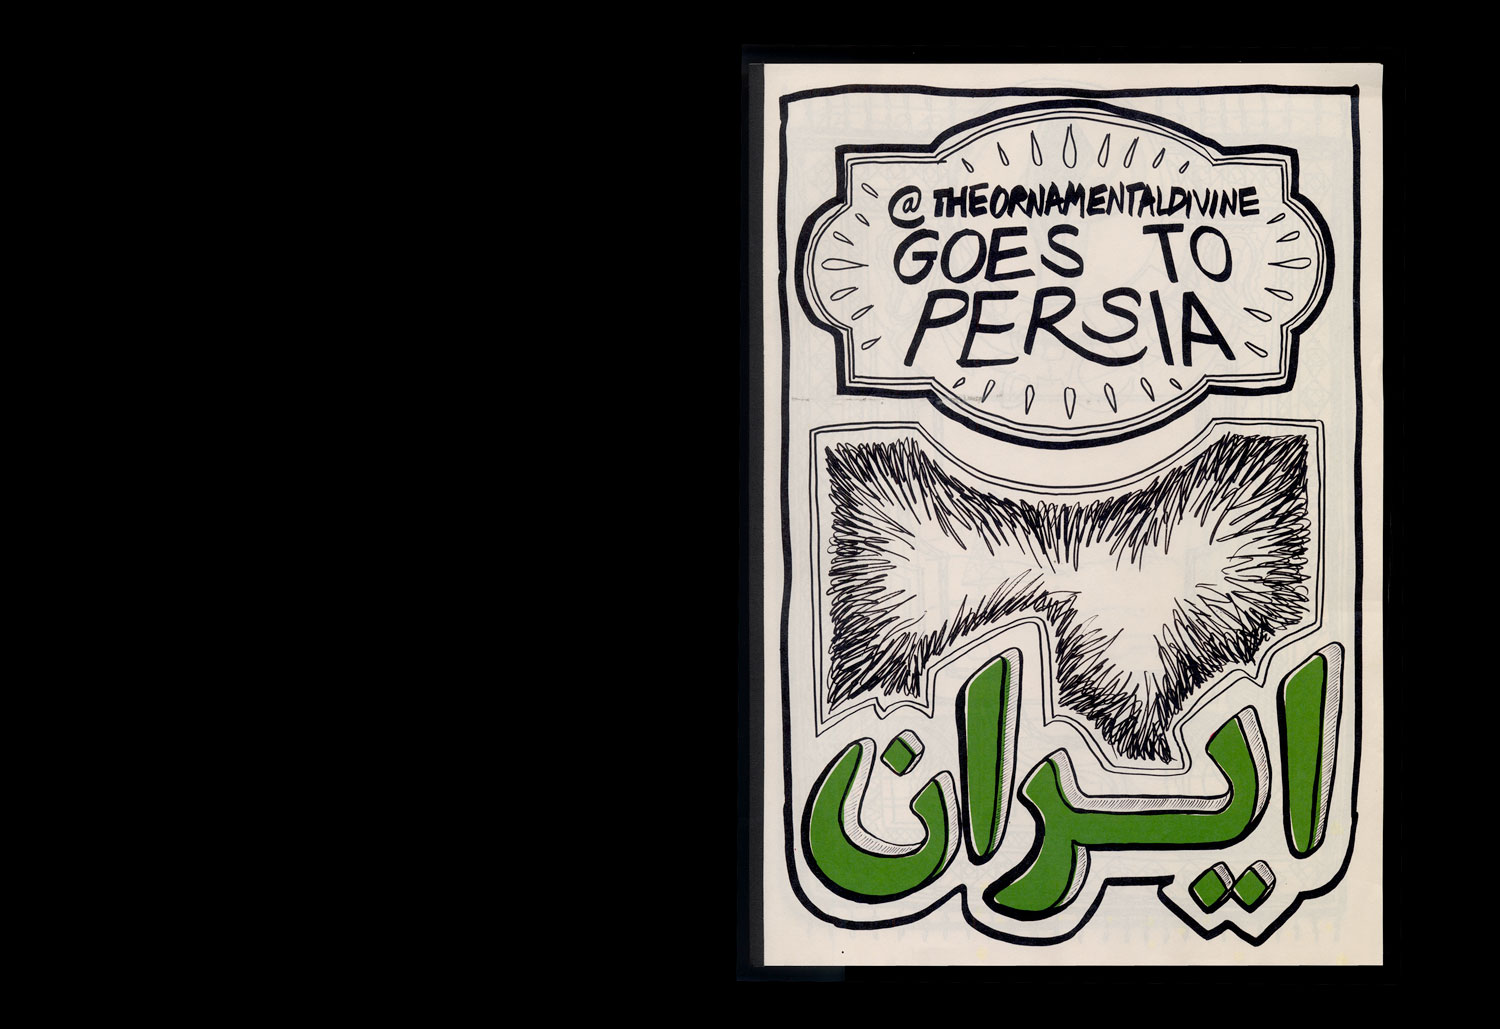 @THEORNAMENTALDIVINE
GOES TO
PERSIA
ایران